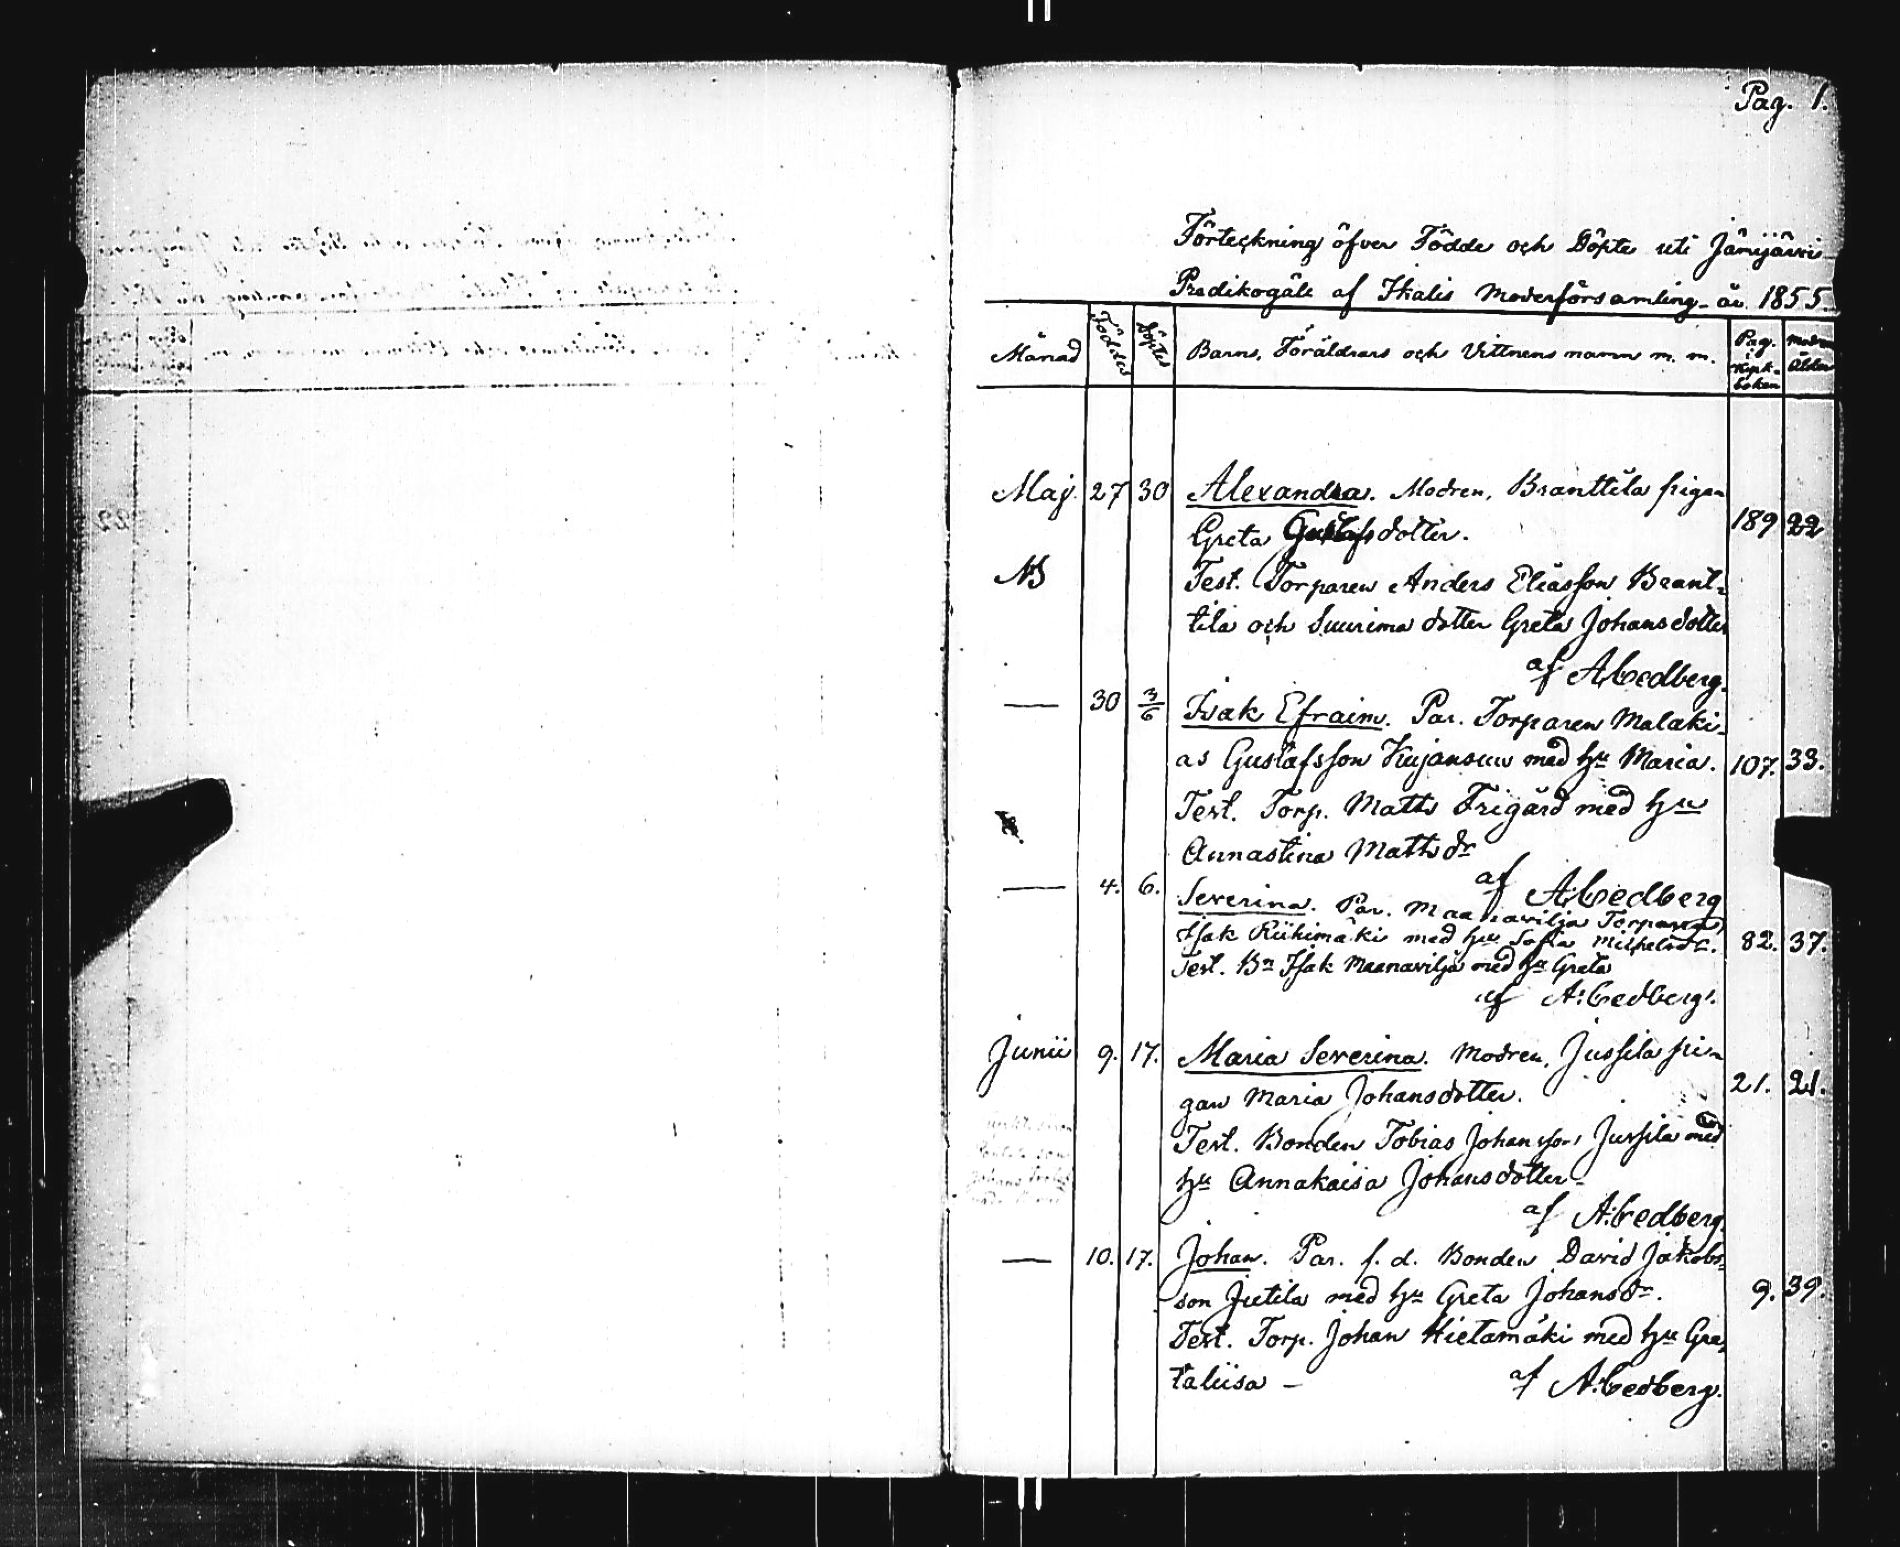 Pag. 1.
Förteckning öfver Födde och Döpte uti Jämijärvi
Predikogäll af Ikalis Moderförsamling år 1855.
Månad Föddes Döptes Barns, Föräldrars och Vittnens namn m. m. Pag. i Kyrk-boken Modrens Ålder
Maj. 27 30 Alexandra. Modren, Branttila pigan
Greta Gustafsdotter. 189 22
NB Test. Torparen Anders Eliasson Brant-
tila och Suurima dotter Greta Johansdotter
af A. Cedberg.
— 30 3/6 Isak Efraim. Par. Torparen Malaki-
as Gustafsson Kujansuu med hu Maria. 107. 33.
Test. Torp. Matts Frigård med hu
Annastina Mattsdr
af A. Cedberg
— 4. 6. Severina. Par. Maanavilja Torparen
Isak Riihimäki med hu Sofia Michelsdr. 82. 37.
Test. Bn Isak Maanavilja med hu Greta
af A. Cedberg.
Junii 9. 17. Maria Severina. Modren, Jussila pi-
gan Maria Johansdotter. 21. 21.
Test. Bonden Tobias Johansson Jussila med
hu Annakaisa Johansdotter-
af A. Cedberg.
— 10. 17. Johan. Par. f. d. Bonden David Jakobs-
son Jutila med hu Greta Johansdr. 9. 39.
Test. Torp. Johan Hietamäki med hu Gre-
taliisa - af A. Cedberg.